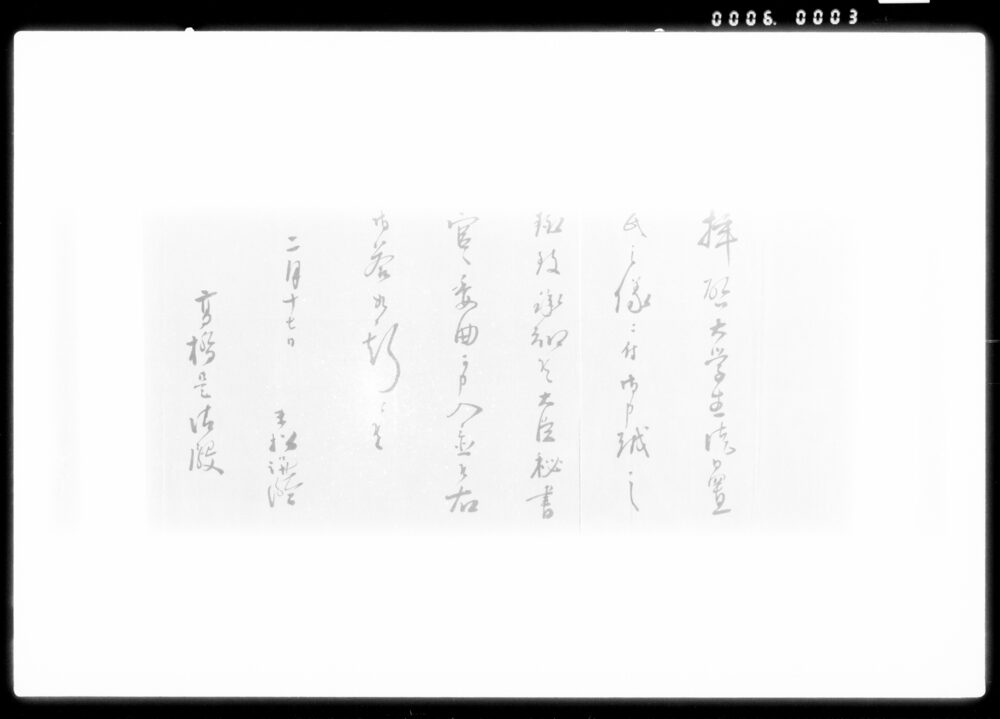 0006. 0003
拝啓大学生
氏之儀ニ付御申越之
趣致承知候大臣秘書
官へ委曲申入置候右
御答如斯ニ候
二月十七日 末松謙澄
高橋是清殿